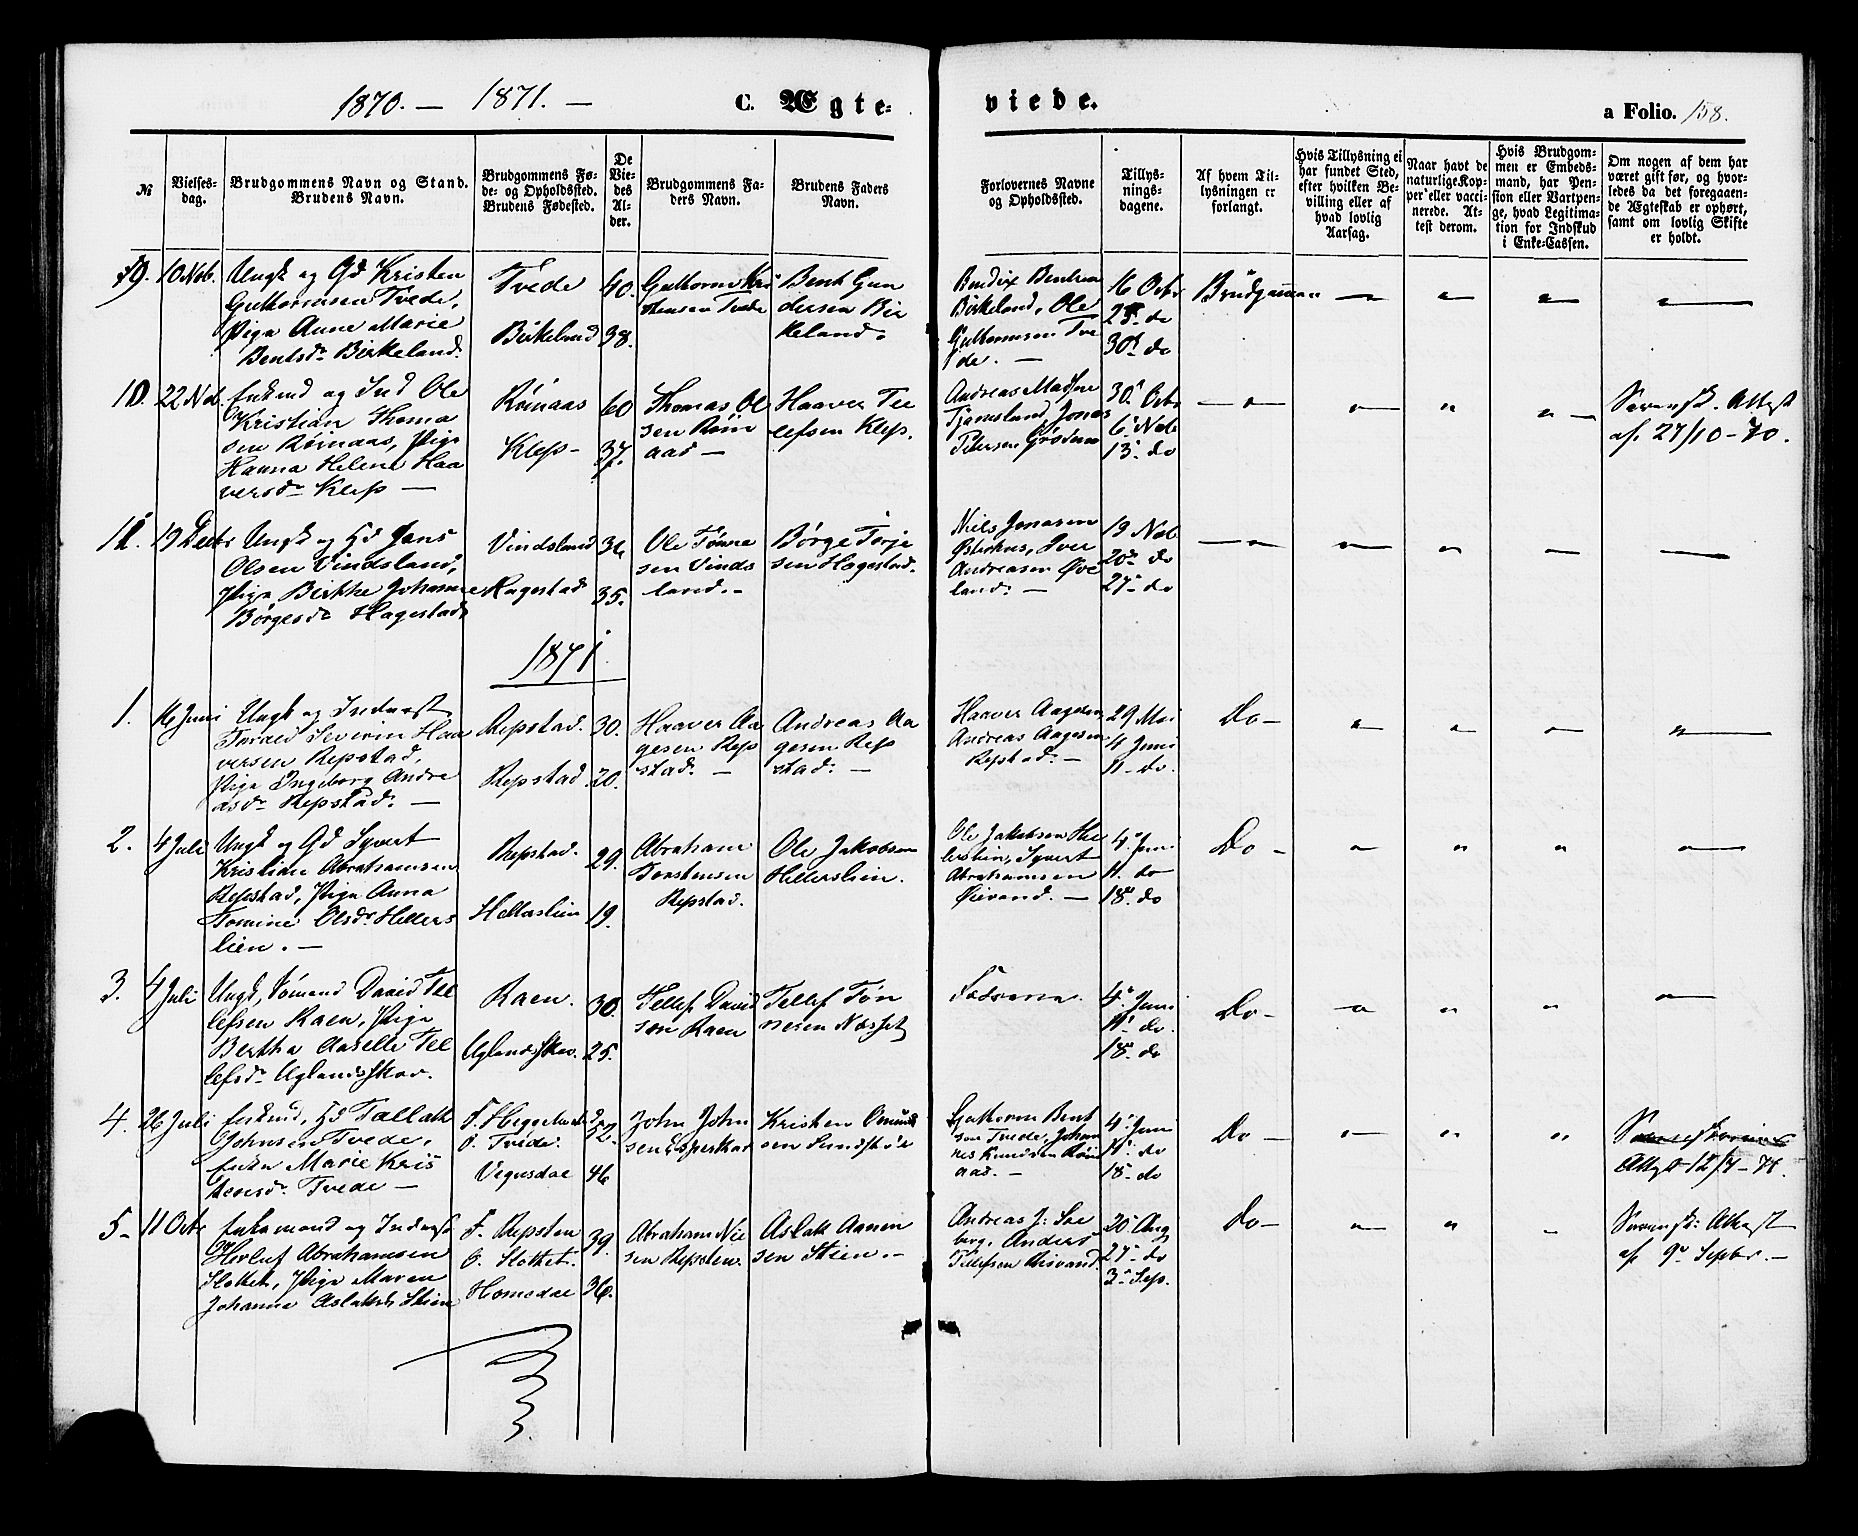 1870. — 1871. —
C. Ægte-
viede.
a Folio. 158.
№
Vielses-
dag.
Brudgommens Navn og Stand.
Brudens Navn.
Brudgommens Fø-
de- og Opholdssted.
Brudens Fødested.
De
Vie-
des
Al-
der.
Brudgommens Fa-
ders Navn.
Brudens Faders
Navn.
Forlovernes Navne
og Opholdssted.
Tillys-
nings-
dagene.
Af hvem Til-
lysningen er
forlangt.
Hvis Tillysning ei
har fundet Sted,
efter hvilken Be-
villing eller af
hvad lovlig
Aarsag.
Naar havt de
naturlige Kop-
per eller vacci-
nerede. At-
test derom.
Hvis Brudgom-
men er Embeds-
mand, har Pen-
sion eller Vartpen-
ge, hvad Legitima-
tion for Indskud
i Enke-Cassen.
Om nogen af dem har
været gift før, og hvor-
ledes da det foregaaen-
de Ægteskab er ophørt,
samt om lovlig Skifte
er holdt.
9. 10 Nob.
Ungk og Gd Kristen
Guttormsen Tvede,
Pige Anne Marie
Bentsdr Birkeland.
Tvede
Birkeland
40.
38.
Guttorm Kri
stensen Tvede
Bent Gun
dersen Bir
keland.
Bendix Bentsen
Birkeland, Ole
Guttormsen Tve
de. —
16 Octbr
23 do
30 do
Brudgommen
10. 22 Nob.
Enkmd og Ind Ole
Kristian Thoma
sen Røinaas, Pige
Hanna Helene Haa
versdr Klep —
Røinaas
Klep —
60
37.
Thomas Ol
sen Røin
aas —
Haaver Tel
lefsen Klep.
Andreas Madsen
Tjomsland, Jonas
Petersen
30 Octbr
6 Nob
13 do
Skifte Attest
af 27/10 - 70.
11. 19 Decbr
Ungk og Gd Jens
Olsen Vindsland,
Pige Birthe Johanne
Børgesdr Hagestad
Vindsland
Hagestad
36
35.
Ole Tønne
sen Vinds
land. —
Børge Torje
sen Hagestad.
Niels Jonasen
Østerhus, Iver
Andreasen Øve
land. —
13 Nob
20 do
27 do
1871.
1. 16 Juni
Ungk og Inderst
Torald Severin Haa
versen Repstad,
Pige Ingeborg Andre
asdr Repstad. —
Repstad.
Repstad
30.
20.
Haaver Aa
gesen Rep
stad. —
Andreas Aa
gesen Rep
stad. —
Haaver Aagesen
Andreas Aagesen
Repstad. —
29 Mai
4 Juni
11 do.
Do —
2. 4 Juli
Ungk og Gd Syvert
Kristian Abrahamsen
Repstad, Pige Anna
Tomine Olsdr Hellers
lien. —
Repstad.
Hellerslien
29.
19.
Abraham
Torstensen
Repstad.
Ole Jakobsen
Hellerslien.
Ole Jakobsen Hel
lerslien, Syvert
Abrahamsen
Øievand. —
4 Juni
11. do
18. do
Do —
3. 4 Juli
Ungk, Sømand David Tel
lefsen Raen, Pige
Bertha Aaselle Tel
lefsdr Uglandsskov.
Raen.
Uglandsskov.
30.
25.
Tellef David
sen Raen
Tellef Tøn
nesen Næsset
Fædrene.
4 Juni
11 do
18 do
Do —
4. 26 Juli
Enkmd, Gd Tallak
Johnsen Tvede,
Enke Marie Kris
tensdr Tvede —
F.
O. Tvede.
Vegusdal
52.
46
John John
sen Espeskar
Kristen Omund
sen Sundskøl
Guttorm Bent
sen Tvede, Johan
nes Knudsen Røin
aas. —
4 Juni
11 do
18 do
Do —
Attest 12/7 - 71.
5 — 11 Octbr
Enkemand og Inderst
Herlef Abrahamsen
Slottet, Pige Maren
Johanne Aslaksdr Stien
F. Repsten
O. Slottet.
Homedal
39.
36.
Abraham Nie
sen Repsten.
Aslak Aanon
sen Stien. —
Andreas J. Sol
berg, Anders
Tellefsen Risvand.
20 Aug
27 do
3 Sep.
Do —
Skifte Attest
af 9 Septbr. —